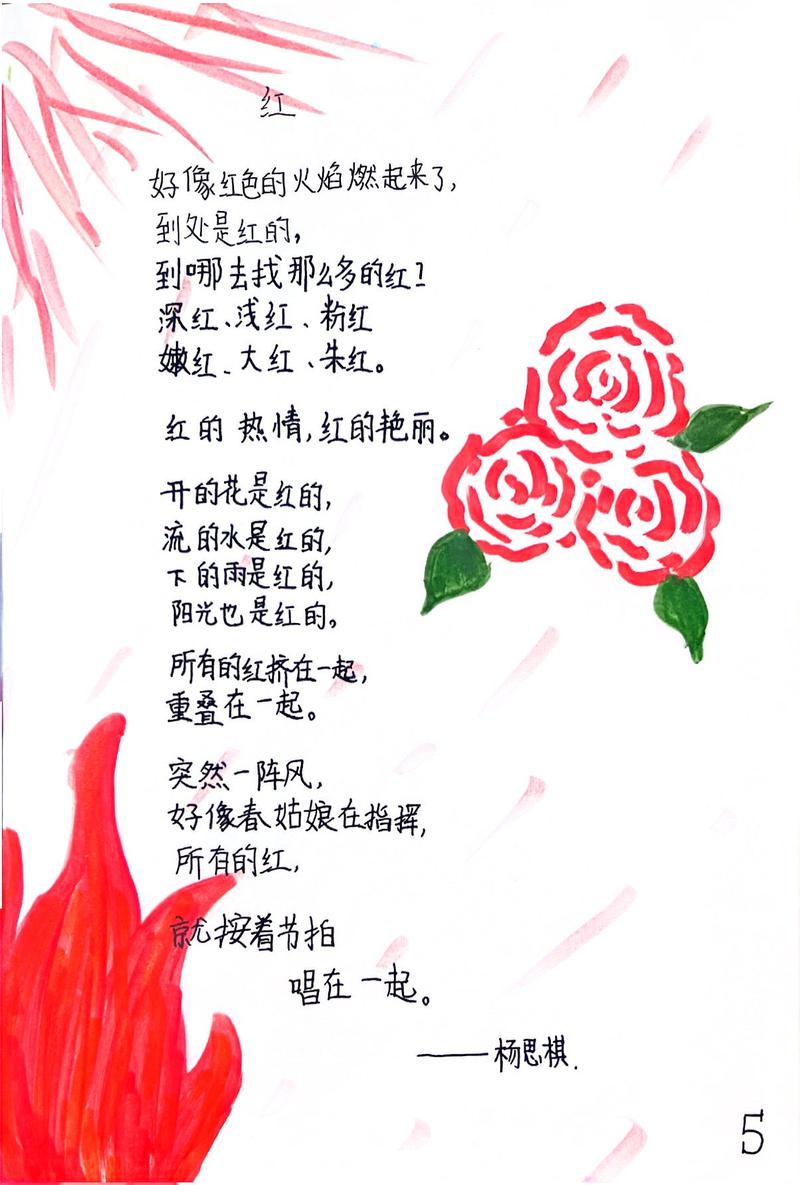 红
好像红色的火焰燃起来了,
到处是红的,
到哪去找那么多的红?
深红、浅红、粉红
嫩红、大红、朱红。
红的 热情,红的艳丽。
开的花是红的,
流的水是红的,
下的雨是红的,
阳光也是红的。
所有的红挤在一起,
重叠在一起。
突然一阵风,
好像春姑娘在指挥,
所有的红,
就按着节拍
唱在一起。
——杨思棋.
5